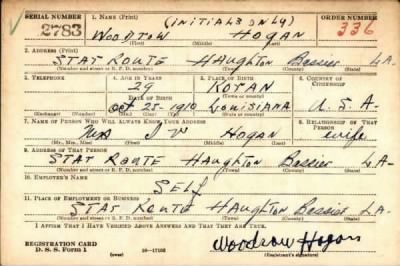 SERIAL NUMBER 1. NAME (Print) (INITIALS ONLY) ORDER NUMBER
2783 WOODROW HOGAN 336
(First) (Middle) (Last)
2. ADDRESS (Print)
STAR ROUTE HAUGHTON Bossier LA.
(Number and street or R. F. D. number) (Town) (County) (State)
3. TELEPHONE 4. AGE IN YEARS 5. PLACE OF BIRTH 6. COUNTRY OF CITIZENSHIP
29
DATE OF BIRTH (Town or county)
Oct 25-1910 Louisiana U. S. A-
(Exchange) (Number) (Mo.) (Day) (Yr.) (State or country)
7. NAME OF PERSON WHO WILL ALWAYS KNOW YOUR ADDRESS 8. RELATIONSHIP OF THAT PERSON
Mrs HOGAN wife
(Mr., Mrs., Miss) (First) (Middle) (Last)
9. ADDRESS OF THAT PERSON
STAR ROUTE HAUGHTON Bossier LA-
(Number and street or R. F. D. number) (Town) (County) (State)
10. EMPLOYER'S NAME
SELF
11. PLACE OF EMPLOYMENT OR BUSINESS
STAR ROUTE HAUGHTON Bossier LA-
(Number and street or R. F. D. number) (Town) (County) (State)
I AFFIRM THAT I HAVE VERIFIED ABOVE ANSWERS AND THAT THEY ARE TRUE.
REGISTRATION CARD Woodrow Hogan
D. S. S. Form 1 (over) 16—17105 (Registrant's signature)